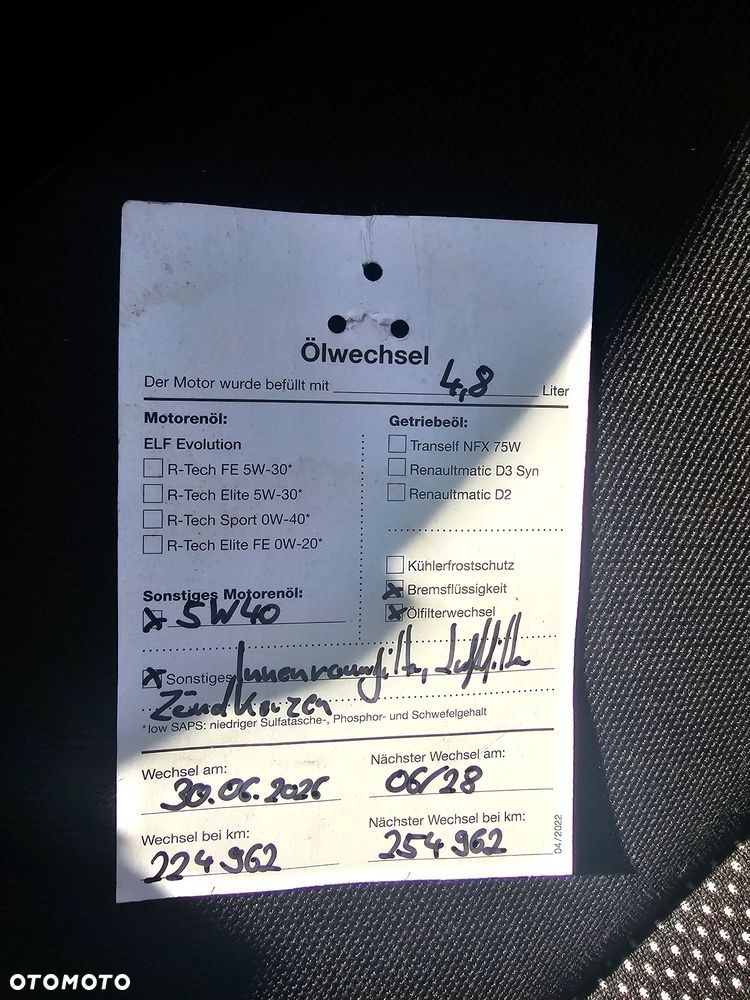 Ölwechsel
Der Motor wurde befüllt mit 4,8 Liter
Motorenöl:
ELF Evolution
R-Tech FE 5W-30*
R-Tech Elite 5W-30*
R-Tech Sport 0W-40*
R-Tech Elite FE 0W-20*
Sonstiges Motorenöl:
5W40
Getriebeöl:
Tranself NFX 75W
Renaultmatic D3 Syn
Renaultmatic D2
Kühlerfrostschutz
Bremsflüssigkeit
Ölfilterwechsel
Sonstiges Innenraumfilter, Luftfilter
Zündkerzen
*low SAPS: niedriger Sulfatasche-, Phosphor- und Schwefelgehalt
Wechsel am:
30.06.2026
Nächster Wechsel am:
06/28
Wechsel bei km:
224 962
Nächster Wechsel bei km:
254 962
04/2022
OTOMOTO